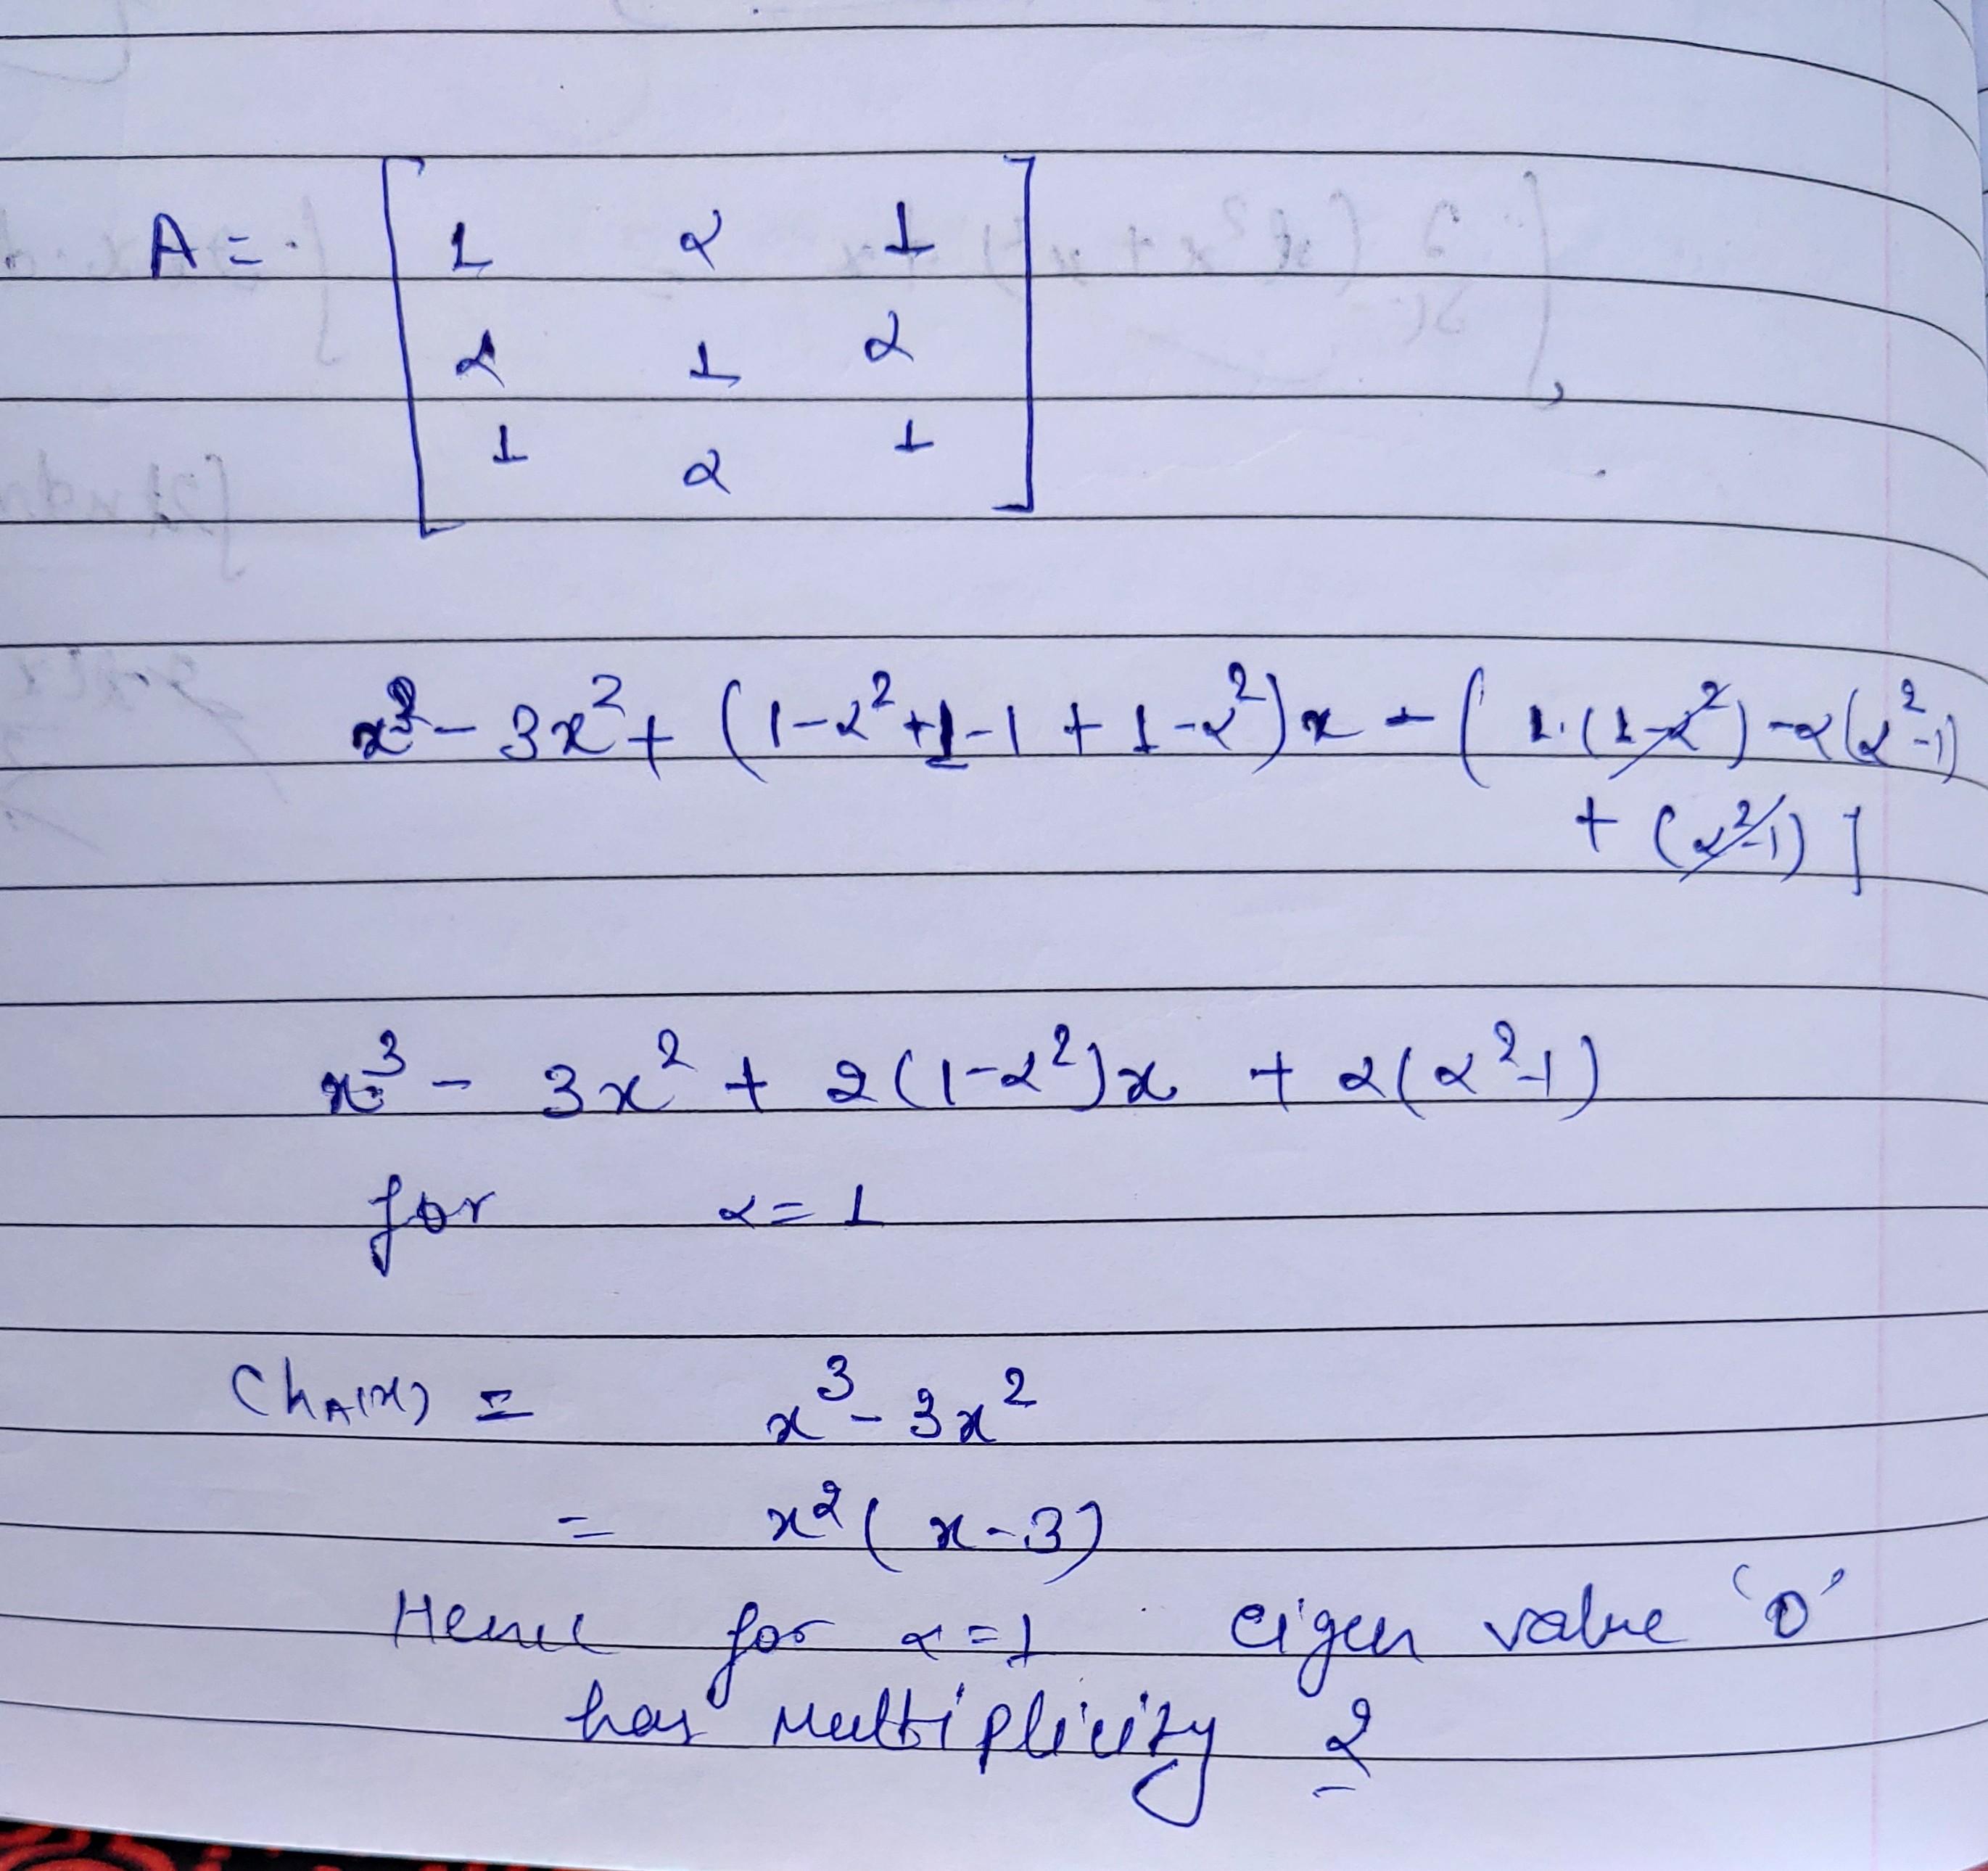 A = [ 1 α 1
α 1 α
1 α 1 ]
x³ - 3x² + (1-α²+1-1+1-α²)x - ( 1.(1-α²) -α(α²-1)
+ (α²-1) ]
x³ - 3x² + 2(1-α²)x + α(α²-1)
for α = 1
Ch_A(x) = x³ - 3x²
= x²(x-3)
Hence for α=1 eigen value '0'
has Multiplicity 2